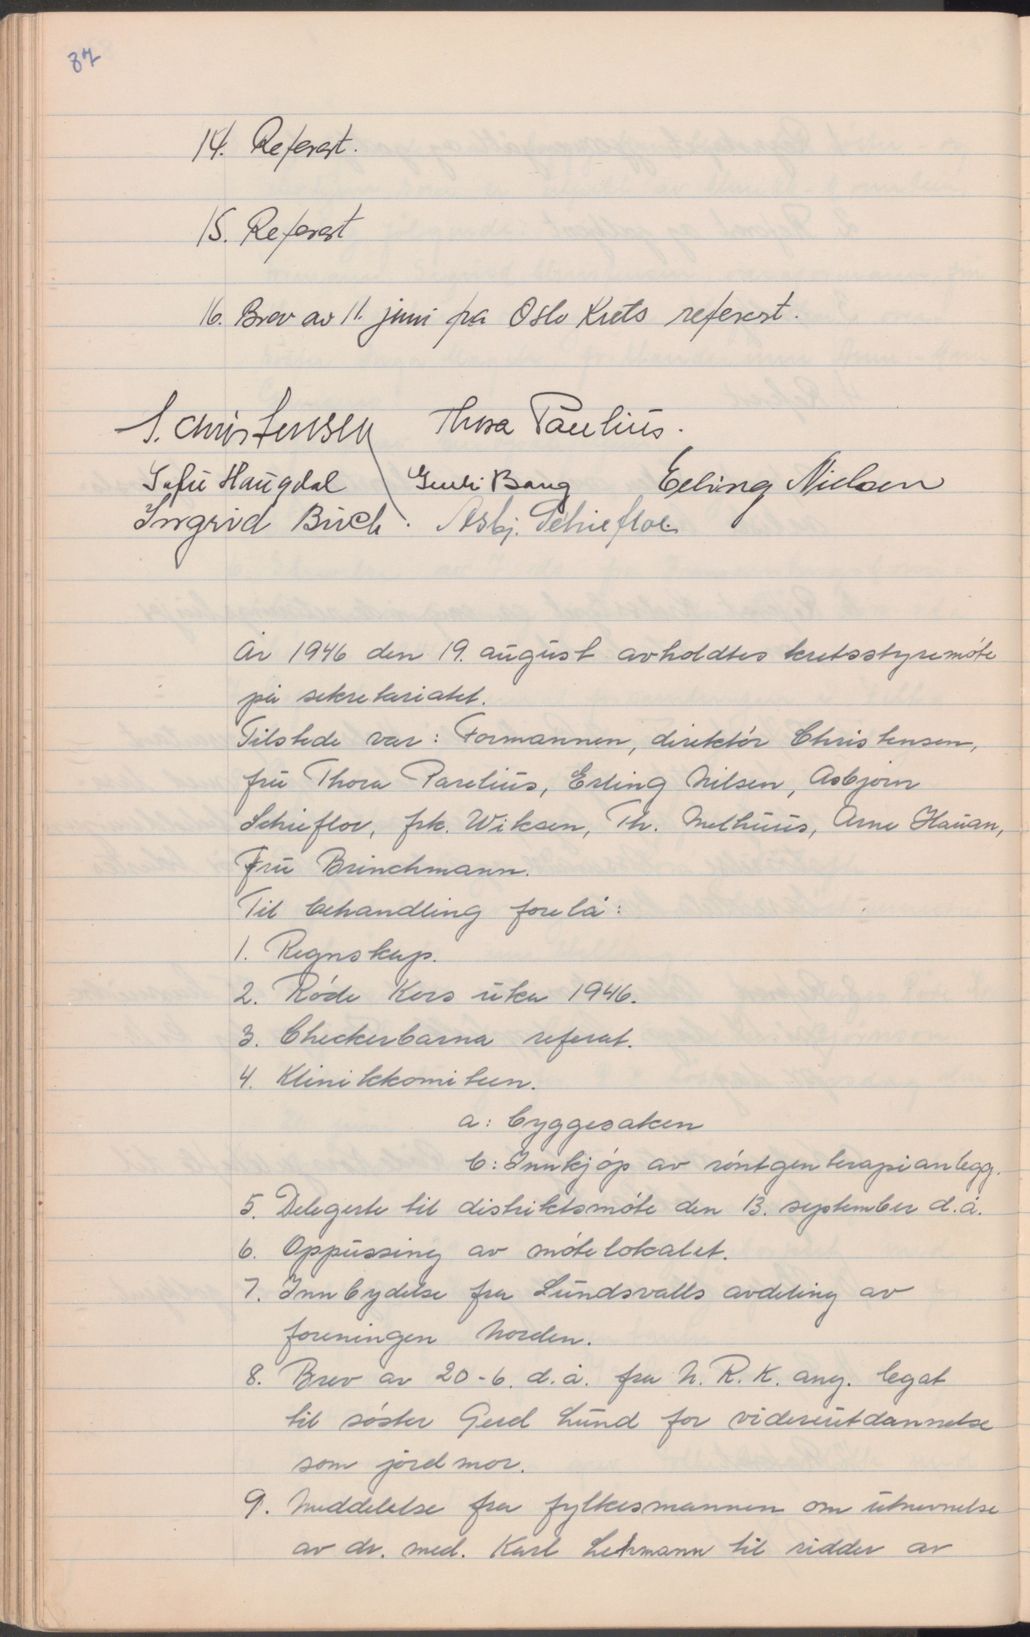 87
14. Referert.
15. Referert
16. Brev av 11. juni fra Oslo Krets referert.
S. Christensen Thora Parelius.
Sofie Haugdal Guli Bang Erling Nielsen
Ingrid Buch. Asbj. Schiefloe
År 1946 den 19. august avholdtes kretsstyremöte
på sekretariatet.
Tilstede var: Formannen, direktör Christensen,
fru Thora Parelius, Erling Nilsen, Asbjörn
Schiefloe, frk. Wiksen, Th. Melhuus, Arne Hauan,
Fru Brinchmann.
Til behandling forelå:
1. Regnskap.
2. Röde Kors uka 1946.
3. Checkerbarna referat.
4. Klinikkomiteen.
a: byggesaken
b: Innkjöp av röntgenterapianlegg.
5. Delegerte til distriktsmöte den 13. september d.å.
6. Oppussing av mötelokalet.
7. Innbydelse fra Sundsvalls avdeling av
foreningen Norden.
8. Brev av 20-6. d.å. fra N.R.K. ang. legat
til söster Gerd Lund for videreutdannelse
som jordmor.
9. Meddelelse fra fylkesmannen om utnevnelse
av dr. med. Karl Lehmann til ridder av